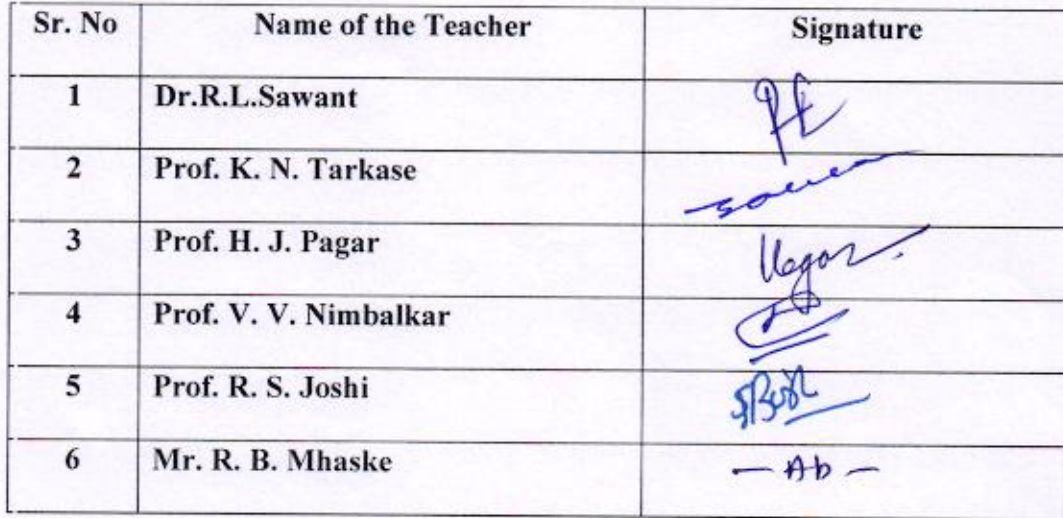 Sr. No Name of the Teacher Signature
1 Dr.R.L.Sawant
2 Prof. K. N. Tarkase
3 Prof. H. J. Pagar
4 Prof. V. V. Nimbalkar
5 Prof. R. S. Joshi
6 Mr. R. B. Mhaske — Ab —